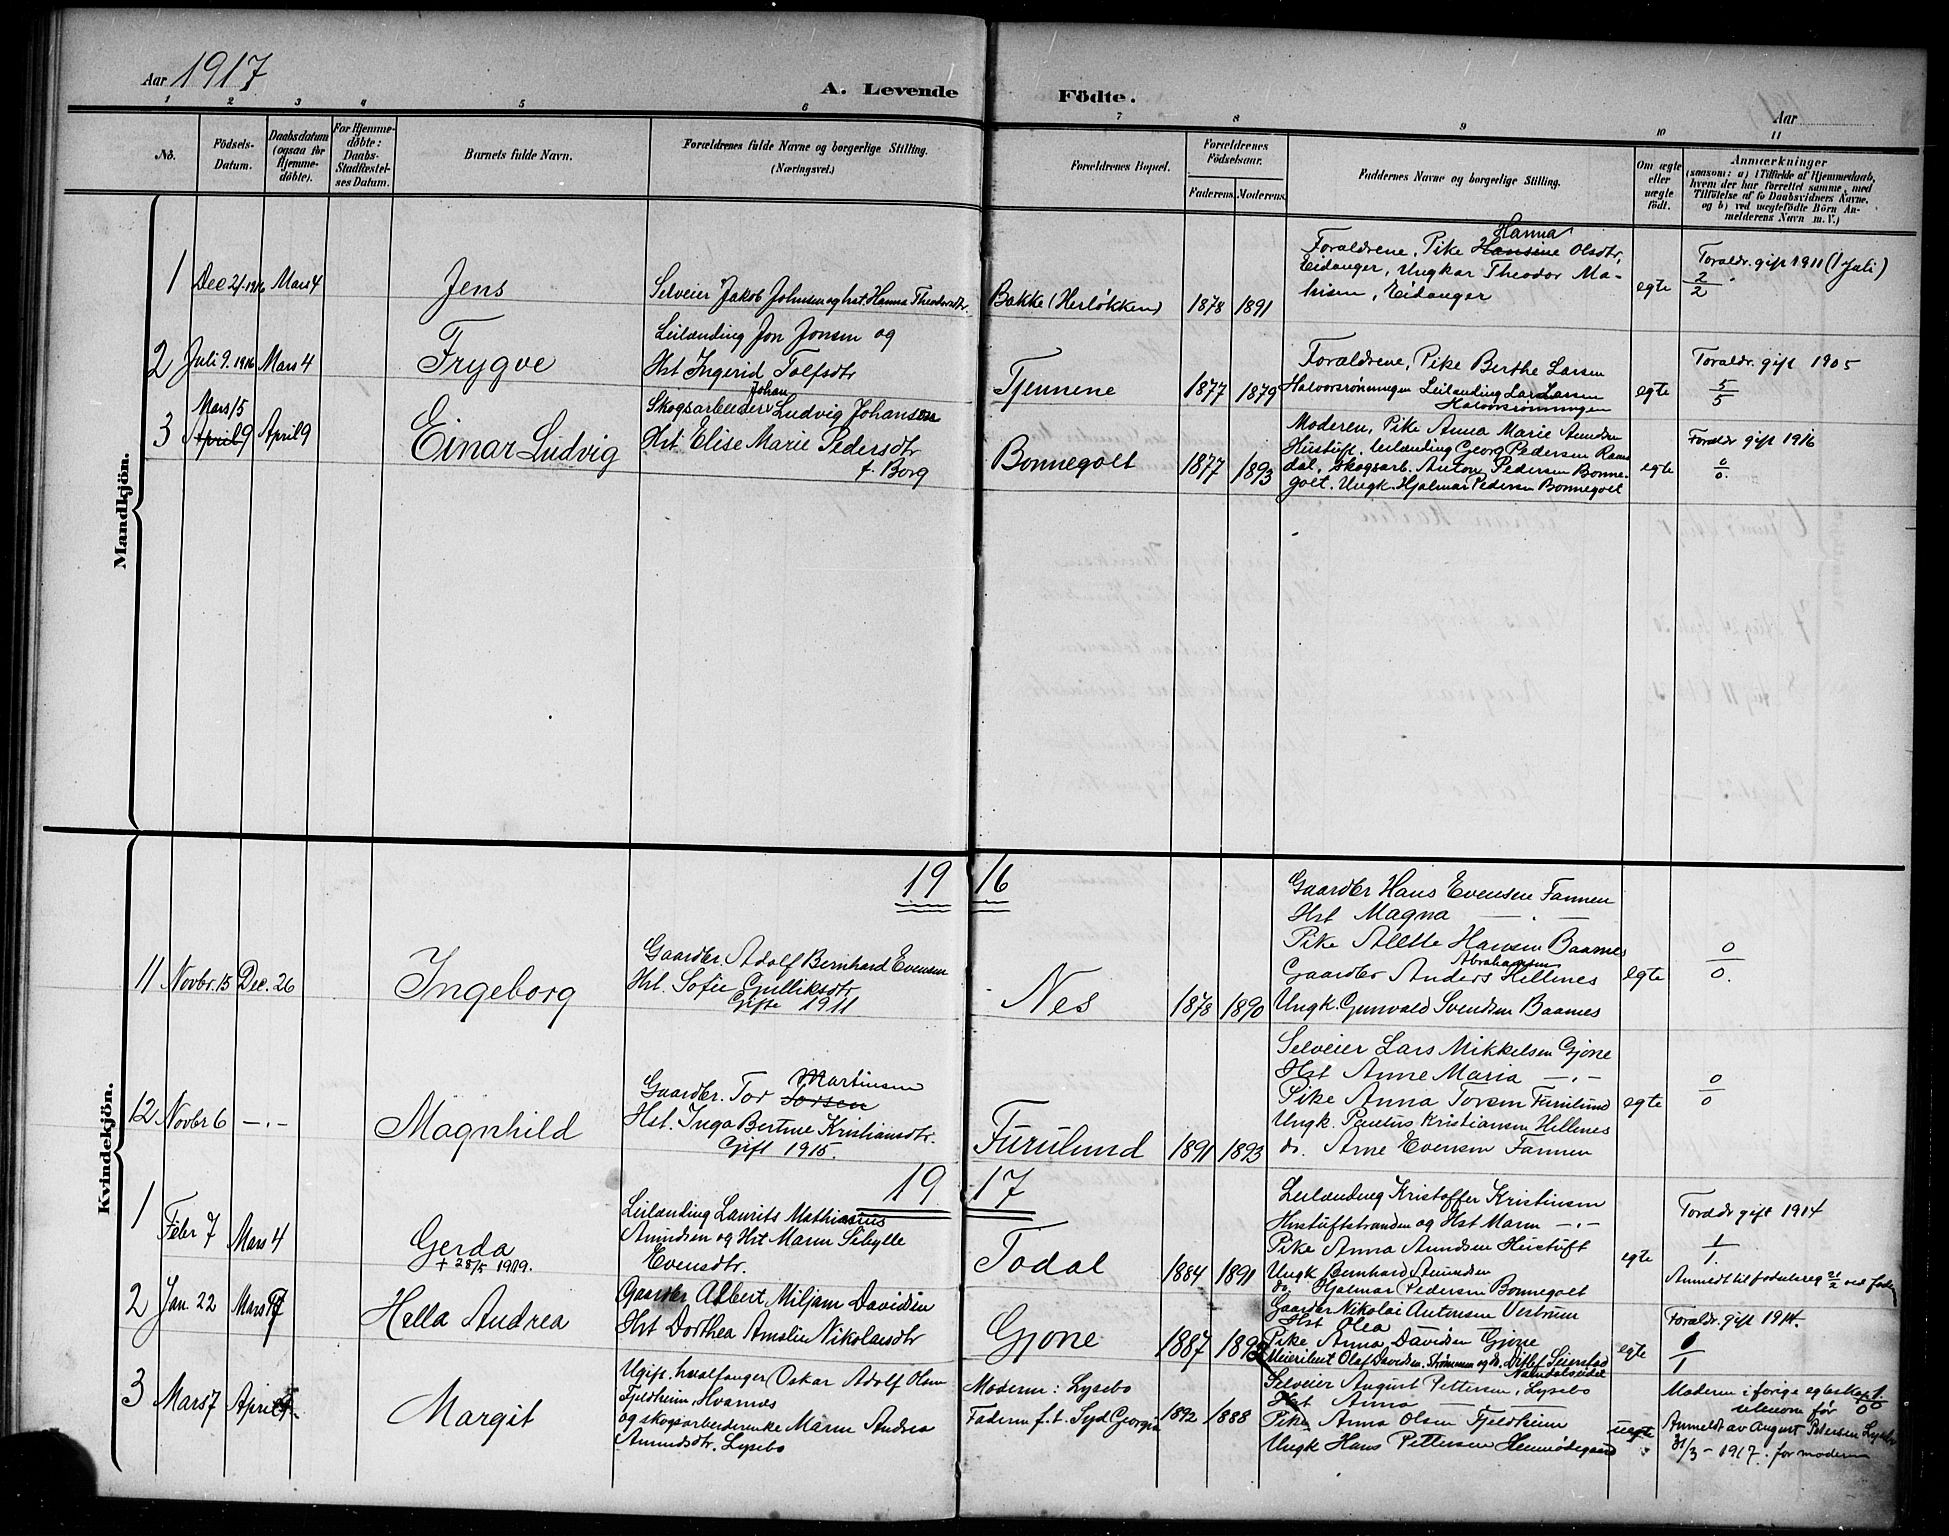 Aar 1917
A. Levende Födte.
Aar
1 2 3 4 5 6 7 8 9 10 11
No.
Födsels-
Datum.
Daabsdatum
(ogsaa for
Hjemme-
döbte).
For Hjemme-
döbte:
Daabs-
Stadfæstel-
ses Datum.
Barnets fulde Navn.
Forældrenes fulde Navne og borgerlige Stilling.
(Næringsvei.)
Forældrenes Bopæl.
Forældrenes
Födselsaar.
Faderens. Moderens.
Faddernes Navne og borgerlige Stilling.
Om ægte
eller
uægte
födt.
Anmærkninger
(saasom: a) i Tilfælde af Hjemmedaab,
hvem der har forrettet samme, med
Tilföielse af to Daabsvidners Navne,
og b) ved uægtefödte Börn An-
melderens Navn m. V.)
Mandkjön.
1 Dec 21. 1916 Mars 4
Jens
Selveier Jakob Johnsen og hst. Hanna Theodorsdtr.
Bakke (Herløkken)
1878 1891
Hanna
Forældrene, Pike Hansine Olsdtr,
Eidanger, Ungkar Theodor Ma-
thisen, Eidanger
egte
Foraldr. gift 1911 (1 Juli)
2/2
2 Juli 9. 1916 Mars 4
Trygve
Leilænding Jon Jonsen og
Hst Ingerid Tolfsdtr
Tjennene
1877 1879
Forældrene, Pike Berthe Larsen
Halvorsrønningen Leilænding Lars Larsen
Halvorsrønningen
egte
Foraldr. gift 1905
5/5
3 Mars 15
April 9 April 9
Einar Ludvig
Johan
Skogsarbeider Ludvig Johansen
Hst Elise Marie Pedersdtr
f. Borg
Bonnegolt
1877 1893
Moderen, Pike Anna Marie Amundsen
Hustuft, Leilænding Georg Pedersen Rams
dal, Skogsarb. Anton Pedersen Bonne-
golt. Ungk. Hjalmar Pedersen Bonnegolt
egte
Foraldr gift 1916
0/0.
Kvindekjön.
19 16
11 Novbr. 15 Dec. 26
Ingeborg
Gaardbr. Adolf Bernhard Evensen
Hst. Sofie Gulliksdtr
Gifte 1911
Nes
1878 1890
Gaardbr Hans Evensen Fannen
Hst Magna — . —
Pike Alette Hansen Baanes
Abrahamsen
Gaardbr Anders Hellenes
Ungk. Gunvald Svendsen Baanes
egte
0/0.
12 Novbr 6 — . —
Magnhild
Martinsen
Gaardbr. Tor Torsen
Hst. Inga Bertine Kristiansdtr.
Gift 1915.
Furulund
1891 1893
Selveier Lars Mikkelsen Gjone
Hst Anne Maria — . —
Pike Anna Torsen Furulund
Ungk. Paulus Kristiansen Hellenes
do. Arne Evensen Fannen
egte
0/0
19 17
1 Febr 7 Mars 4
Gerda
+ 28/5 1919.
Leilænding Laurits Mathias
Amundsen og Hst Maren Sibylle
Evensdtr.
Todal
1884 1891
Leilænding Kristoffer Kristensen
Hustuftstranden og Hst Maren — . —
Pike Anna Amundsen Hustuft
Ungk Bernhard Amundsen
do. Hjalmar Pedersen Bonnegolt
egte
Foraldr gift 1914
1/1.
Anmeldt til fødselsreg 21/2 ved faderen
2 Jan. 22 Mars
Hella Andrea
Gaardbr Albert Miljam Davidsen
Hst Dorthea Amalie Nikolaisdtr
Gjone
1887
Gaardbr Nikolai Antonsen Vestrum
Hst Olea
Pike Anna Davidsen Gjone
Meieribest Olaf Davidsen, Strømmen og do. Ditlef Seierstad
Namdalseidet
egte
Foraldr. gift 1914.
0/1
3 Mars 7 April
Margit
Ugift. hvalfanger Oskar Adolf Olsen
Fjeldheim, Hvarnes
og skogsarbeiderenke Maren Andrea
Amundsdtr. Lysebo
Moderen: Lysebo
Faderen f. t. Syd Georgia
1892 1888
Selveier August Pettersen, Lysebo
Hst Anna — . —
Pike Anna Olsen Fjeldheim
Ungk Hans Pettersen
uegte
Moderen i forige egteskap 1/0
utenom før 0
Anmeldt av August Petersen Lysebo
31/3 – 1917. for moderen